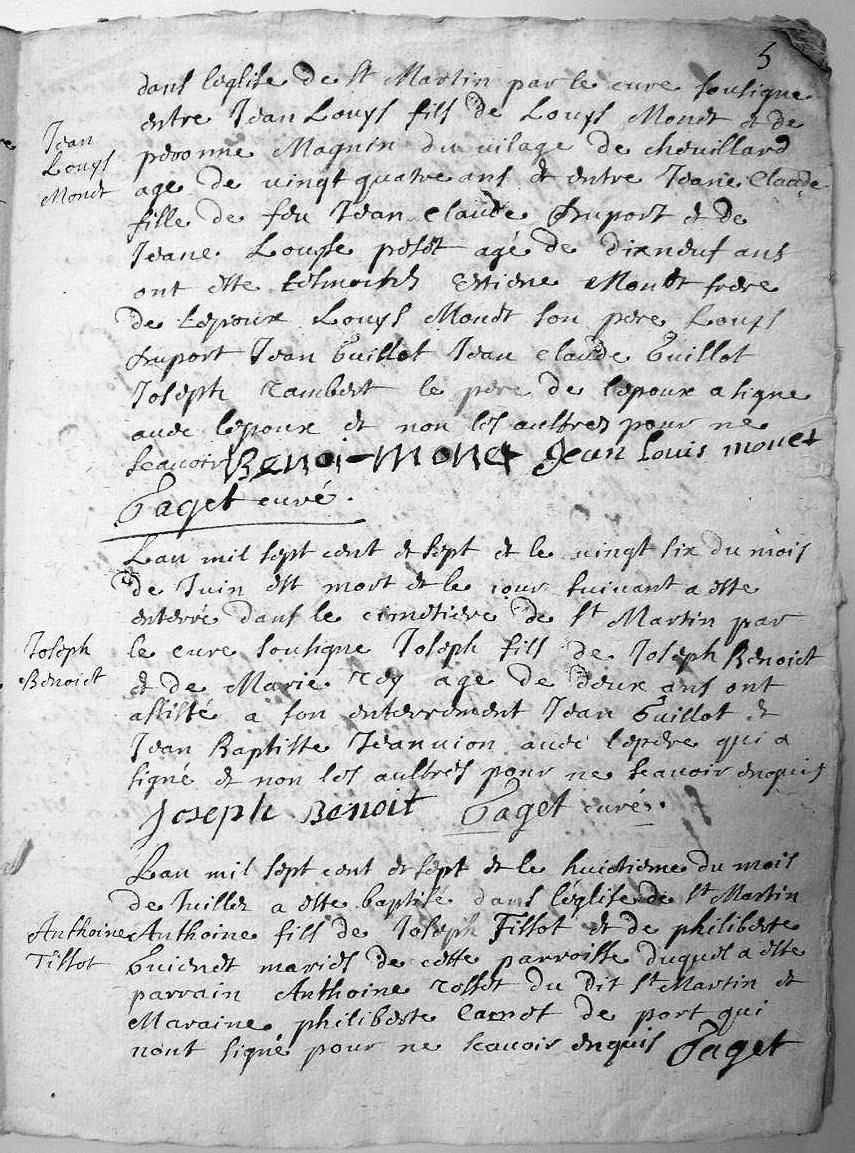 5
dans leglise de St Martin par le cure sousigne
entre Jean Louys fils de Louys Monet et de
peronne Magnin du vilage de chevillard
Jean
Louys
Monet
age de vingt quatre ans et entre Jeane Claude
fille de feu Jean Claude Duport et de
Jeane Louyse age de dixneuf ans
ont este tesmoins Estiene Monet frere
de lepoux Louys Monet son pere Louys
Duport Jean Guillot Jean Claude Guillot
Joseph Tambert le pere de lepoux a signe
avec lepoux et non les aultres pour ne
scavoir Benoi Monet Jean Louis monet
Paget curé.
Lan mil sept cent et sept et le vingt six du mois
de Juin est mort et le jour suivant a este
enterré dans le cimetiere de St Martin par
Joseph
Benoict
le cure sousigne Joseph fils de Joseph Benoict
et de Marie Rey age de deux ans ont
assisté a son enterrement Jean Guillot et
Jean Baptiste Jeanvion avec le pere qui a
signé et non les aultres pour ne scavoir enquis
Joseph Benoit Paget curé.
Lan mil sept cent et sept et le huictieme du mois
de Juillet a este baptisé dans léglise de St Martin
Anthoine
Tissot
Anthoine fils de Joseph Tissot et de philiberte
Guienet mariés de cette parroisse duquel a este
parrain Anthoine Rosset du dit St Martin et
Maraine philiberte Carnet de port qui
nont signé pour ne scavoir enquis Paget